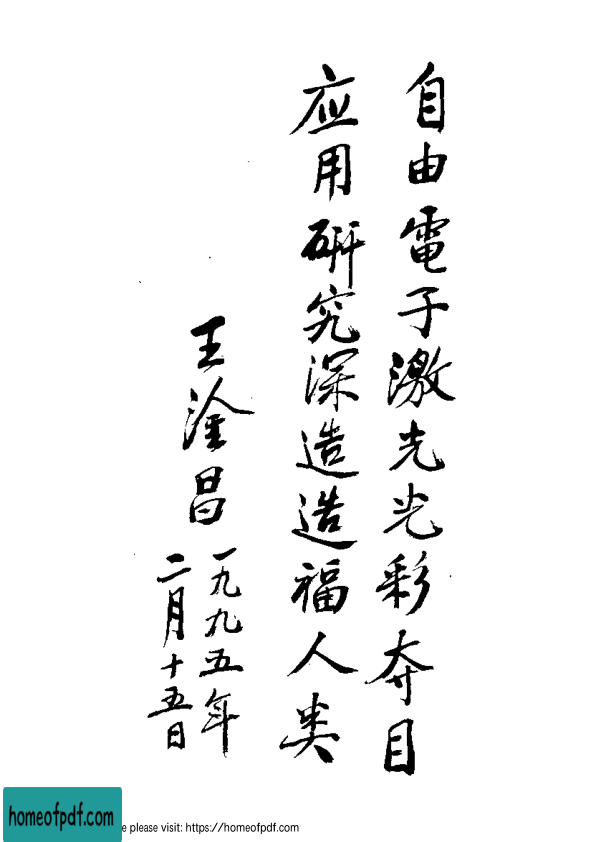 自由電子激光光彩夺目
应用研究深造造福人类
王淦昌
一九九五年
二月十五日
homeofpdf.com
e please visit: https://homeofpdf.com